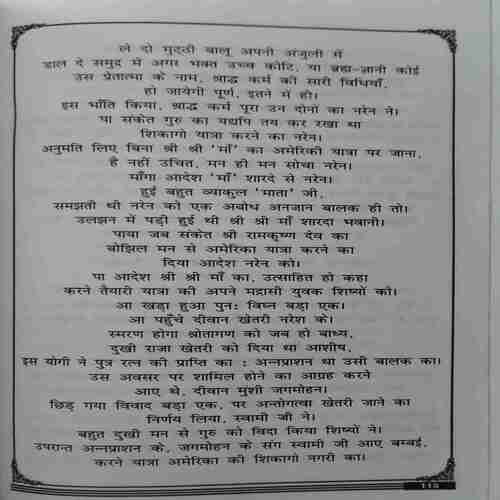 ले दो मुट्ठी बालू अपनी अंजुली में
डाल दे समुद्र में अगर भक्त उच्च कोटि, या ब्रह्म-ज्ञानी कोई
उस प्रेतात्मा के नाम, श्राद्ध कर्म की सारी विधियाँ,
हो जायेगी पूर्ण, इतने में ही।
इस भाँति किया, श्राद्ध कर्म पूरा उन दोनों का नरेन ने।
पा संकेत गुरु का यद्यपि तय कर रखा था
शिकागो यात्रा करने का नरेन।
अनुमति लिए बिना श्री श्री 'माँ' का अमेरिकी यात्रा पर जाना,
है नहीं उचित, मन ही मन सोचा नरेन।
माँगा आदेश 'माँ' शारदे से नरेन।
हुई बहुत व्याकूल 'माता' जी,
समझती थी नरेन को एक अबोध अनजान बालक ही तो।
उलझन में पड़ी हुई थी श्री श्री माँ शारदा भवानी।
पाया जब संकेत श्री रामकृष्ण देव का
बोझिल मन से अमेरिका यात्रा करने का
दिया आदेश नरेन को।
पा आदेश श्री श्री माँ का, उत्साहित हो कहा
करने तैयारी यात्रा की अपने मद्रासी युवक शिष्यों को।
आ खड़ा हुआ पुन: विघ्न बड़ा एक।
आ पहुँचे दीवान खेतरी नरेश के।
स्मरण होगा श्रोतागण को जब हो बाध्य,
दुखी राजा खेतरी को दिया था आशीष,
इस योगी ने पुत्र रत्न की प्राप्ति का : अन्नप्राशन था उसी बालक का।
उस अवसर पर शामिल होने का आग्रह करने
आए थे, दीवान मुंशी जगमोहन।
छिड़ गया विवाद बड़ा एक, पर अन्तोगत्वा खेतरी जाने का
निर्णय लिया, स्वामी जी ने।
बहुत दुखी मन से गुरु को विदा किया शिष्यों ने।
उपरान्त अन्नप्राशन के, जगमोहन के संग स्वामी जी आए बम्बई,
करने यात्रा अमेरिका की शिकागो नगरी का।